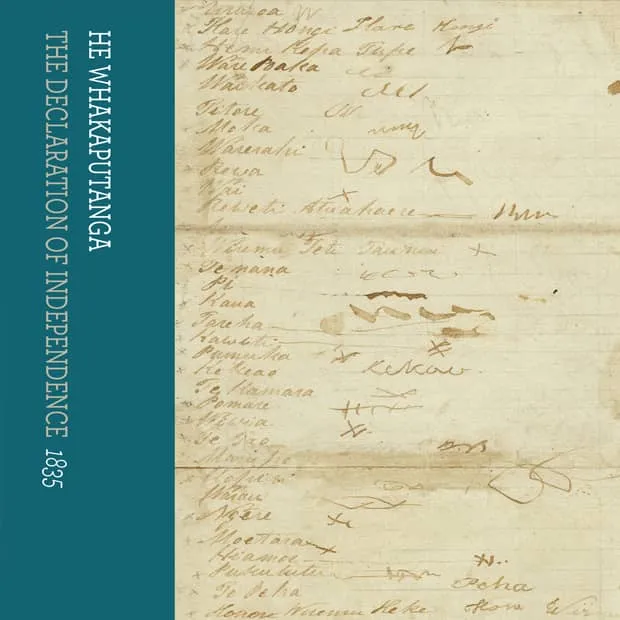 HE WHAKAPUTANGA
THE DECLARATION OF INDEPENDENCE 1835
Hare Hongi Hare Hongi
Hemi Kepa Tupe
Ware Poaka
Waikato
Titore
Moka
Warerahi
Rewa
Wai
Reweti Atuahaere
Wiremu Teti Taunui
Te nana
Pi
Kaua
Tareha
Kawiti
Pumuka
Kekeao Kekeao
Te Kamara
Pomare
Wiwia
Te Tao
Marupo
Kopiri
Warau
Ngere
Moetara
Hiamoe
Pukututu
Te Peka Peka
Hone Wiremu Heke